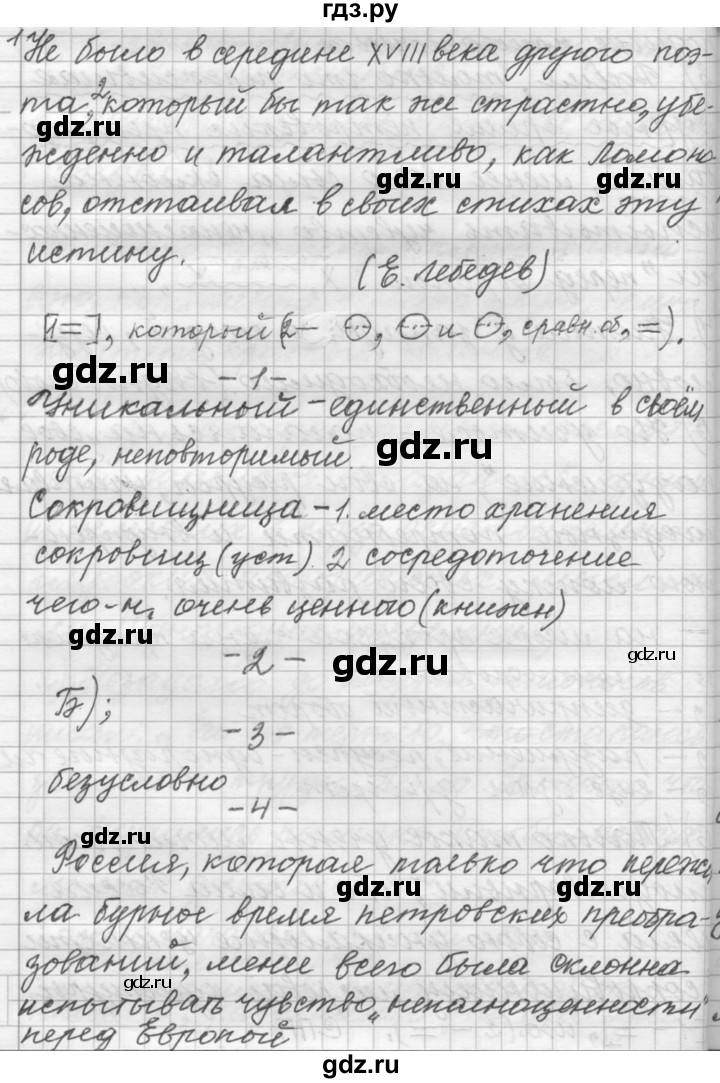 гдз.ру
¹Не было в середине XVIII века другого поэ-
та,² который бы так же страстно, убе-
gdz.ru
жденно и талантливо, как Ломоно
gdz.ru gdz.ru
сов, отстаивал в своих стихах эту
истину.
(Е. Лебедев)
[1=], который (2– ⊖, ⊖ и ⊖, сравн. об, =).
gdz.ru
-1-
Уникальный – единственный в своём
роде, неповторимый.
gdz.ru
Сокровищница – 1. место хранения
сокровищ (уст). 2 сосредоточение
чего-н. очень ценного (книжн)
gdz.ru
-2-
gdz.ru gdz.ru
Б);
-3-
безусловно
-4-
gdz.ru
Россия, которая только что пережи
gdz.ru gdz.ru
ла бурное время петровских преобра-
зований, менее всего была склонна
gdz.ru
испытывать чувство „неполноценности"
перед Европой
gdz.ru